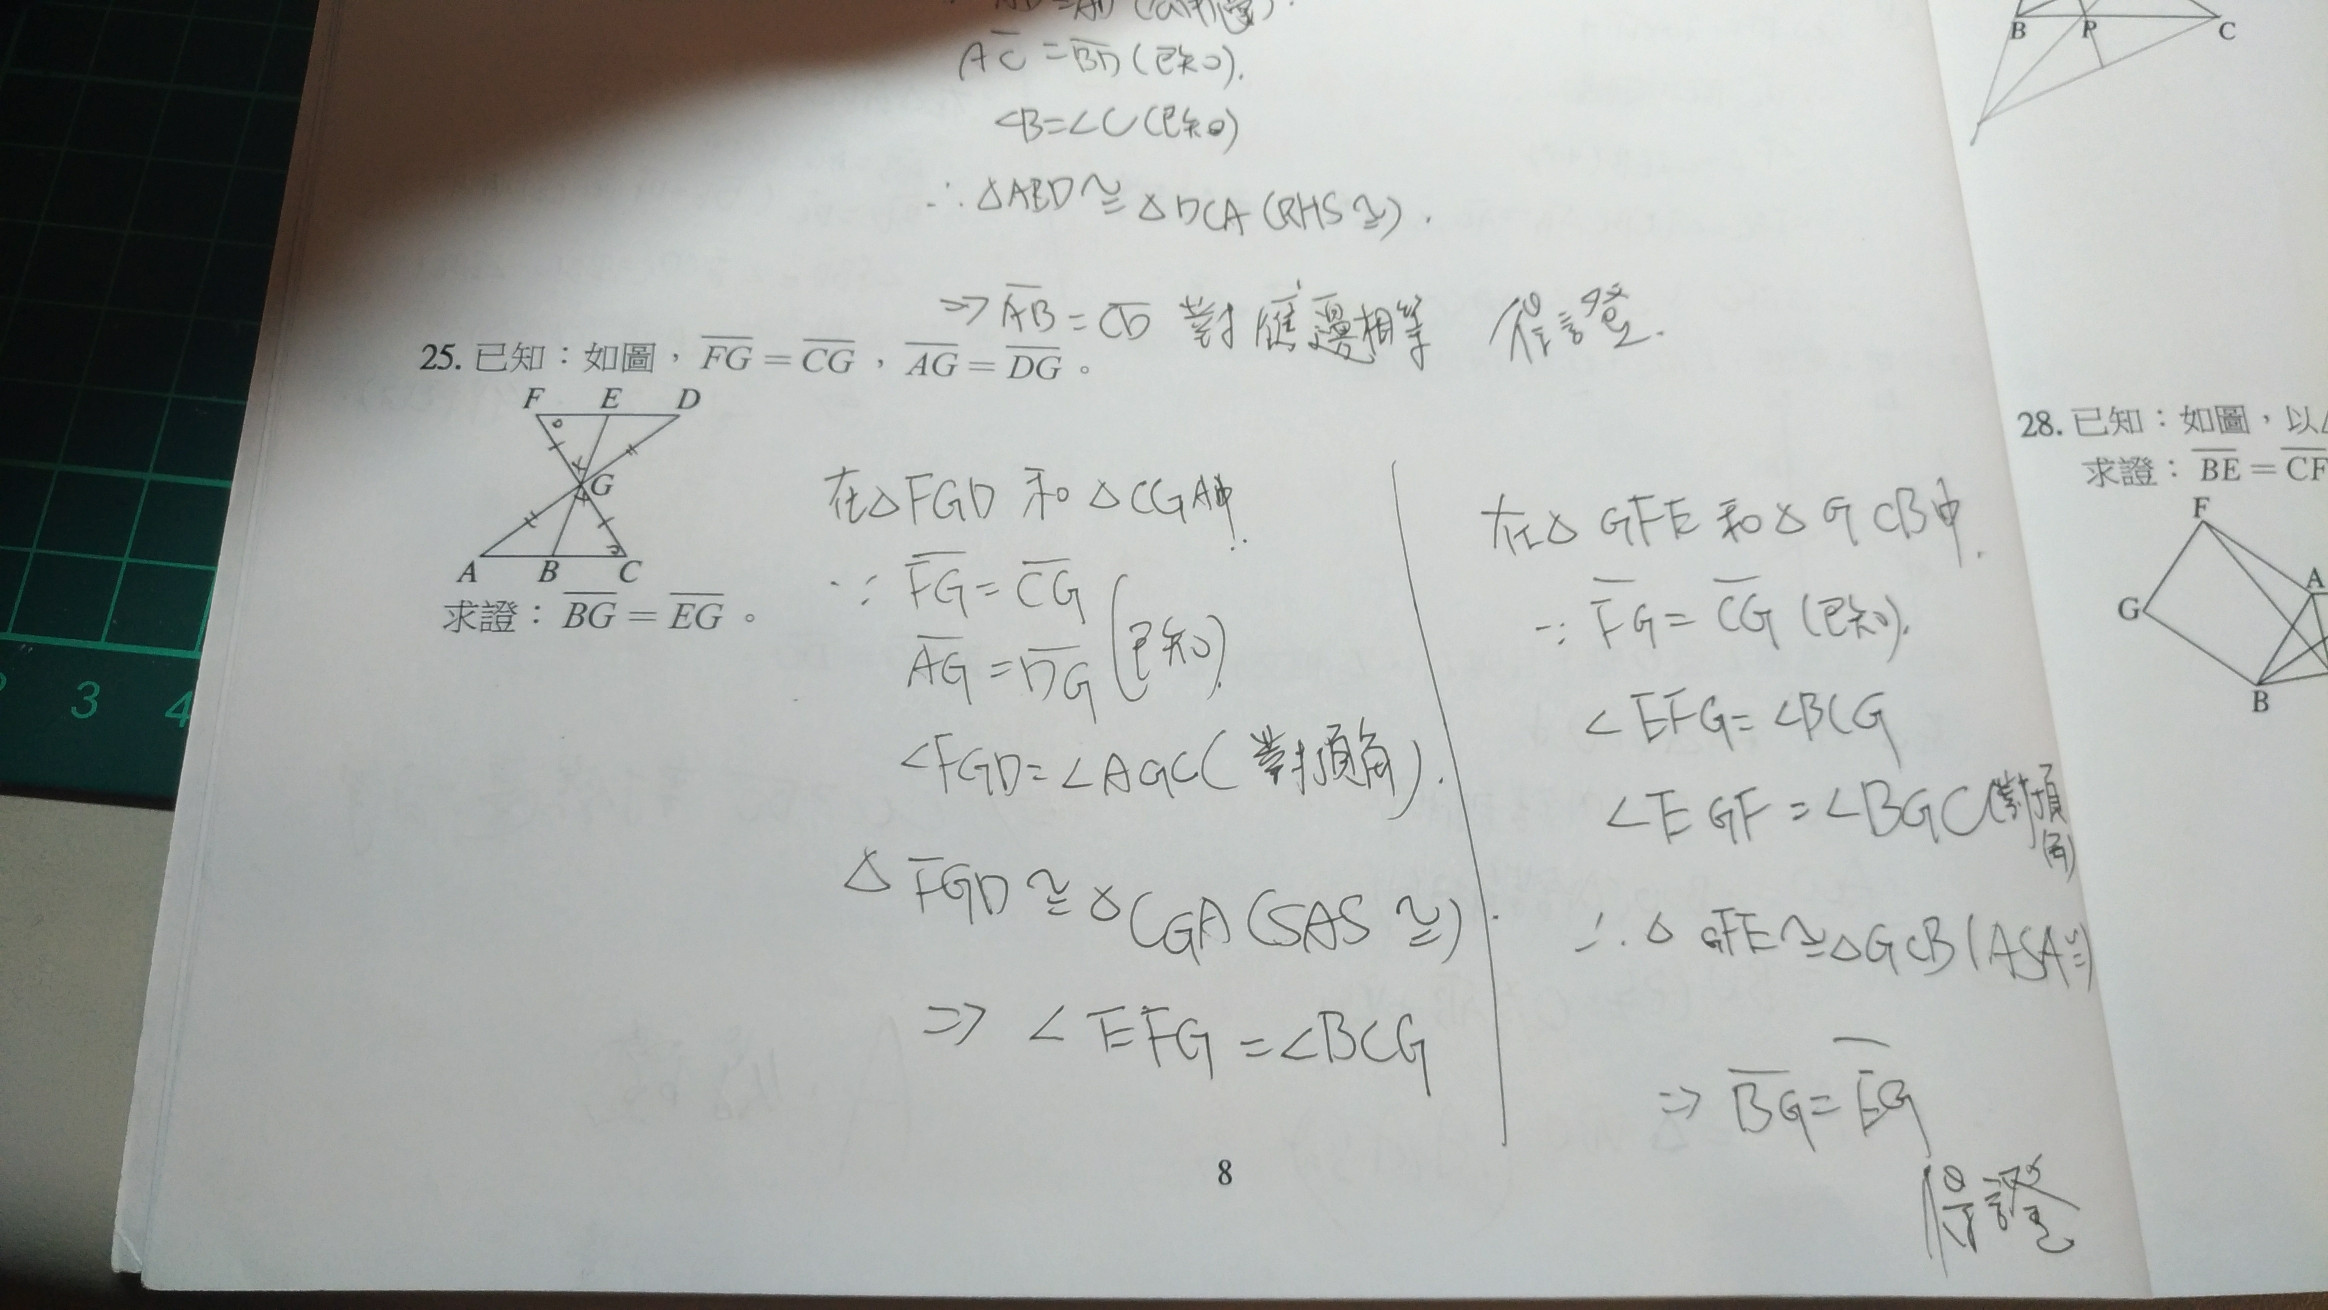 AC = BD (已知).
∠B=∠C (已知)
∴ △ABD ≅ △DCA (RHS ≅).
⇒ AB = CD 對應邊相等 得證.
25. 已知：如圖，FG = CG，AG = DG。
F E D
G
A B C
求證：BG = EG。
在△FGD 和 △CGA中.
∵ FG = CG
AG = DG (已知).
∠FGD = ∠AGC (對頂角).
△FGD ≅ △CGA (SAS ≅)
⇒ ∠EFG = ∠BCG
在△GFE 和 △GCB中.
∵ FG = CG (已知).
∠EFG = ∠BCG
∠EGF = ∠BGC (對頂角)
∴ △GFE ≅ △GCB (ASA ≅)
⇒ BG = EG
得證
8
B P C
28. 已知：如圖，以
求證：BE = CF
F
A
G
B
3 4